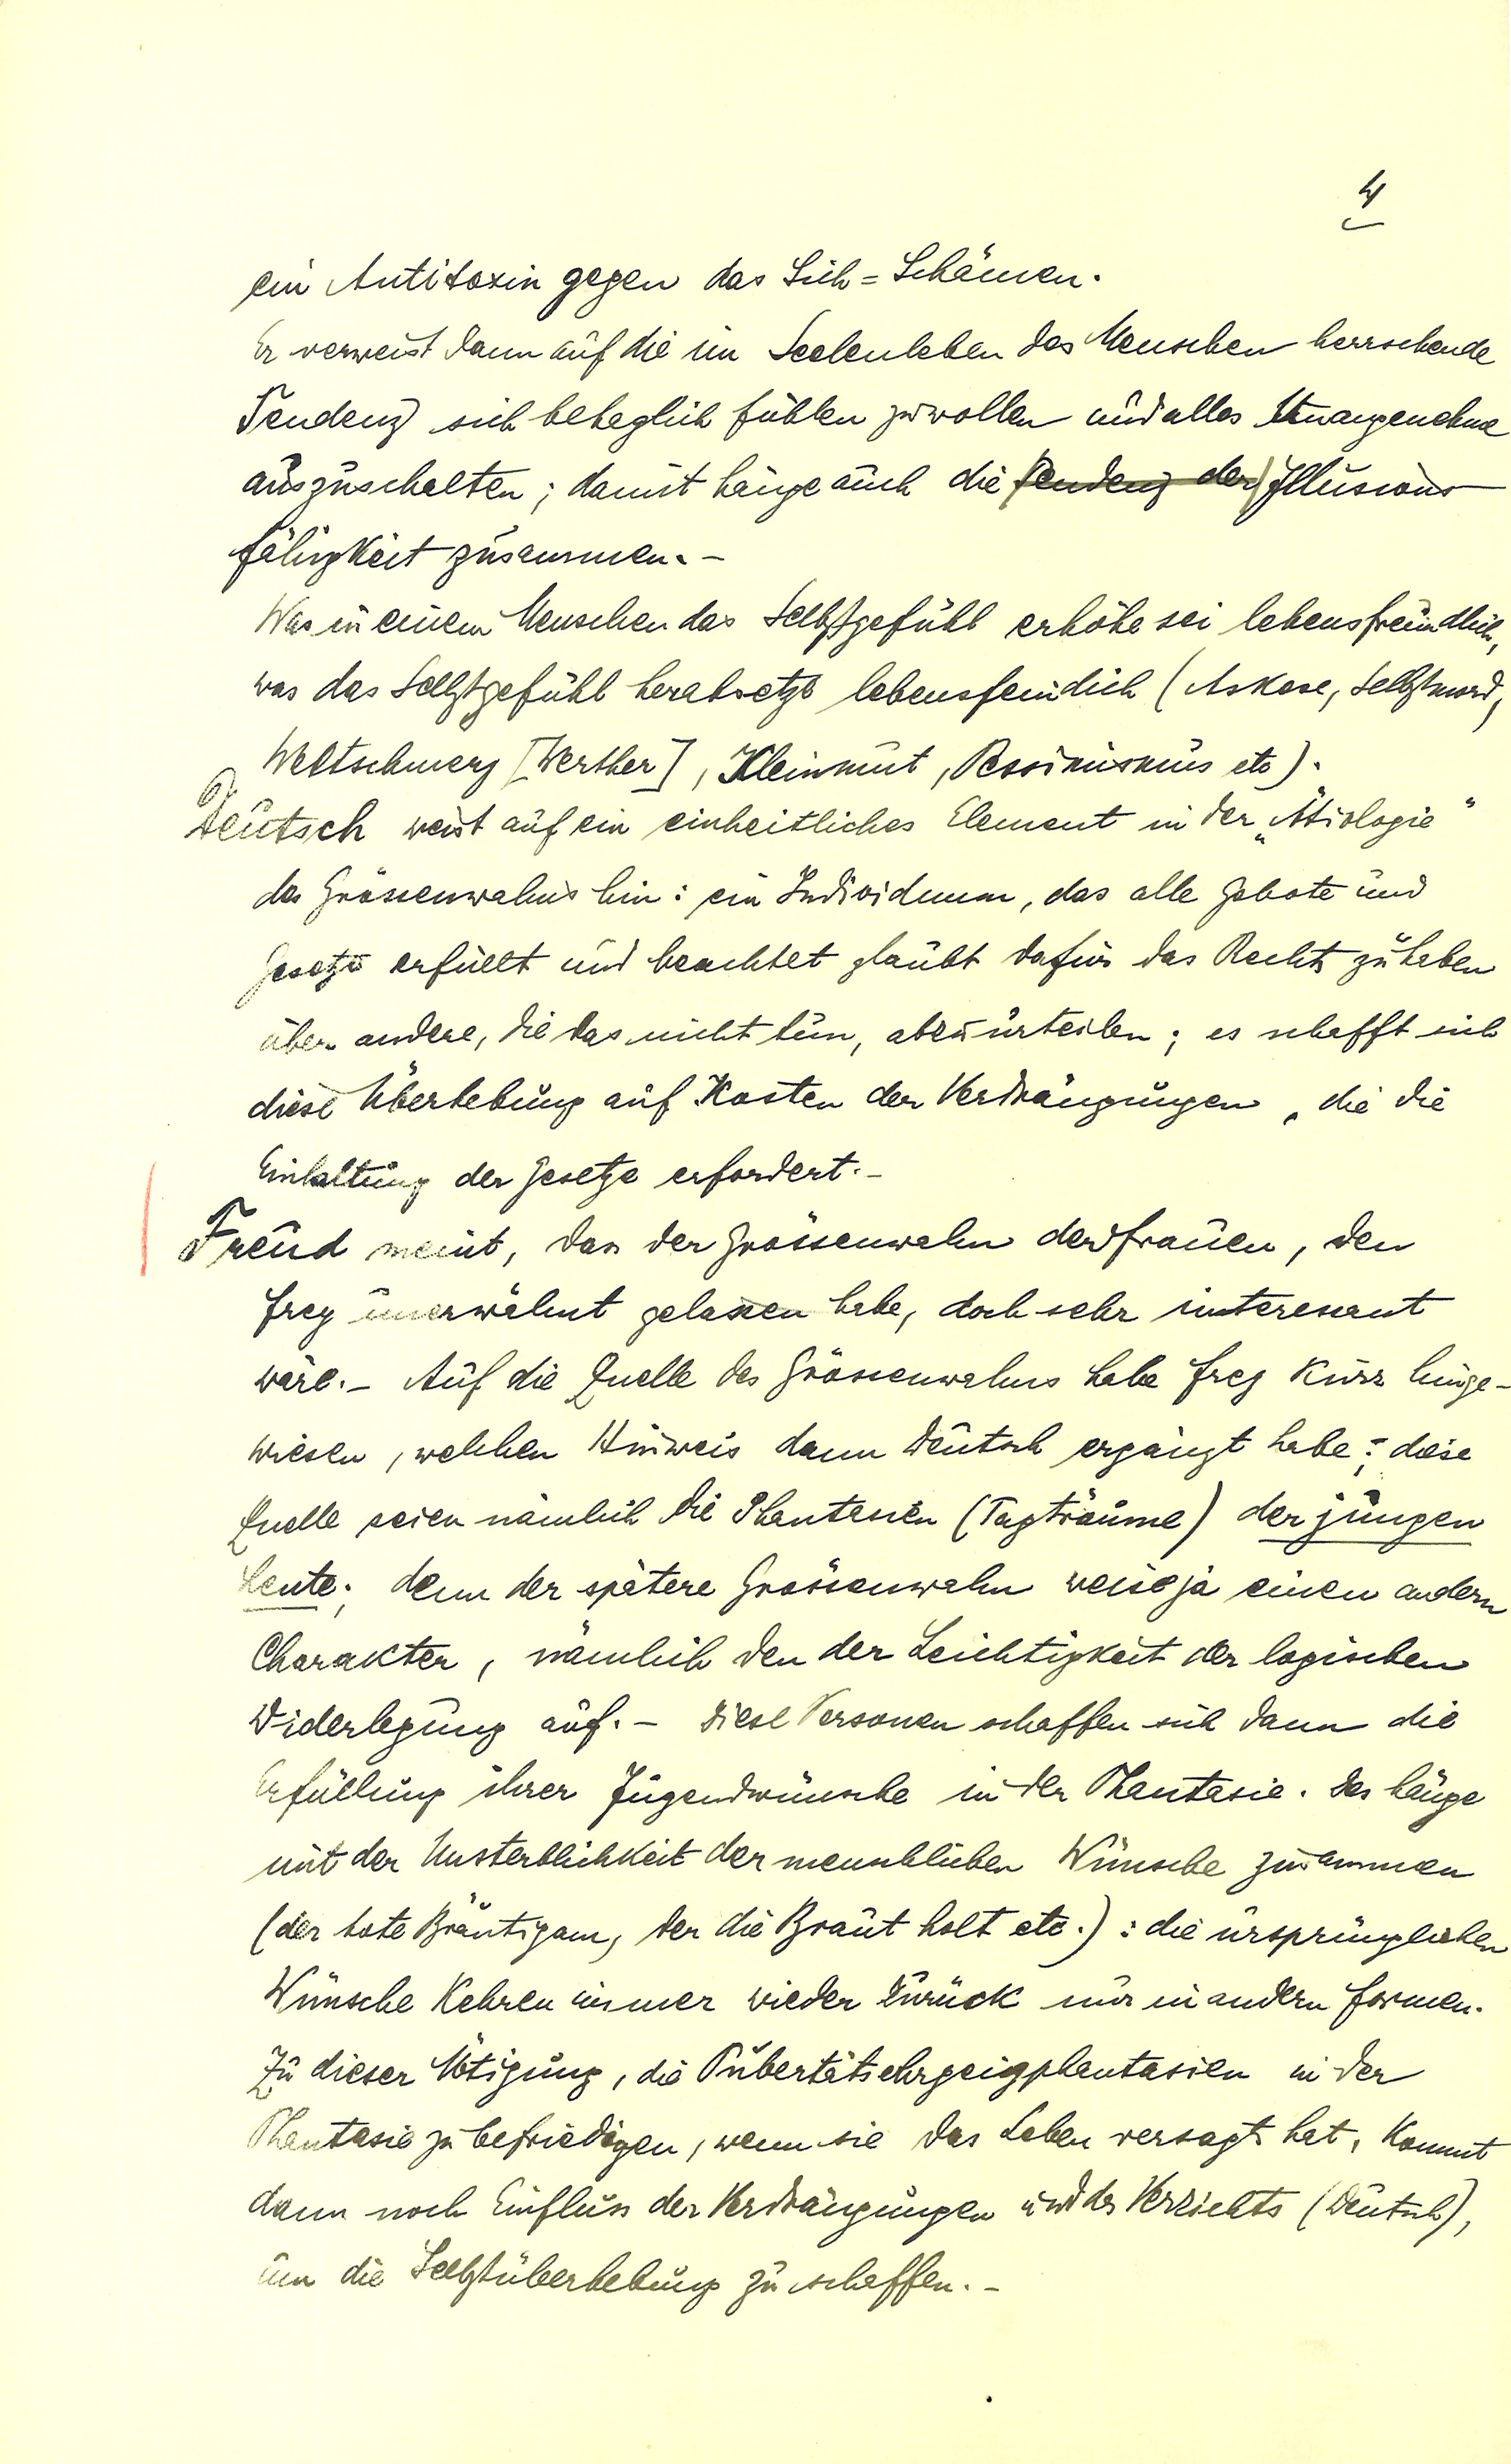 4
ein Antitoxin gegen das Sich=Schämen.
Er verweist dann auf die im Seelenleben des Menschen herrschende
Tendenz sich behaglich fühlen zu wollen und alles Unangenehme
auszuschalten; damit hänge auch die (Tendenz der) Illusions
fähigkeit zusammen.–
Was in einem Menschen das Selbstgefühl erhöhe sei lebensfreundlich,
was das Selbstgefühl herabsetze lebensfeindlich (Askese, Selbstmord,
Weltschmerz [Werther], Kleinmut, Pessimismus etc).
Deutsch weist auf ein einheitliches Element in der „Ätiologie“
des Grössenwahns hin: ein Individuum, das alle Gebote und
Gesetze erfüllt und beachtet glaubt dafür das Recht zu haben
über andere, die das nicht tun, abzuurteilen; es schafft sich
diese Überhebung auf Kosten der Verdrängungen, die die
Einhaltung der Gesetze erfordert.–
Freud meint, dass der Grössenwahn der Frauen, den
Frey unerwähnt gelassen habe, doch sehr interessant
wäre.– Auf die Quelle des Grössenwahns habe Frey kurz hinge-
wiesen, welchen Hinweis dann Deutsch ergänzt habe: diese
Quelle seien nämlich die Phantasien (Tagträume) der jungen
Leute; denn der spätere Grössenwahn weise ja einen andern
Charakter, nämlich den der Leichtigkeit der logischen
Widerlegung auf.– Diese Personen schaffen sich dann die
Erfüllung ihrer Jugendwünsche in der Phantasie. Das hänge
mit der Unsterblichkeit der menschlichen Wünsche zusammen
(der tote Bräutigam, der die Braut holt etc.): die ursprünglichen
Wünsche kehren immer wieder zurück nur in andern Formen.
Zu dieser Nötigung, die Pubertätsehrgeizphantasien in der
Phantasie zu befriedigen, wenn sie das Leben versagt hat, kommt
dann noch Einfluss der Verdrängungen und des Verzichts (Deutsch),
um die Selbstüberhebung zu schaffen.–